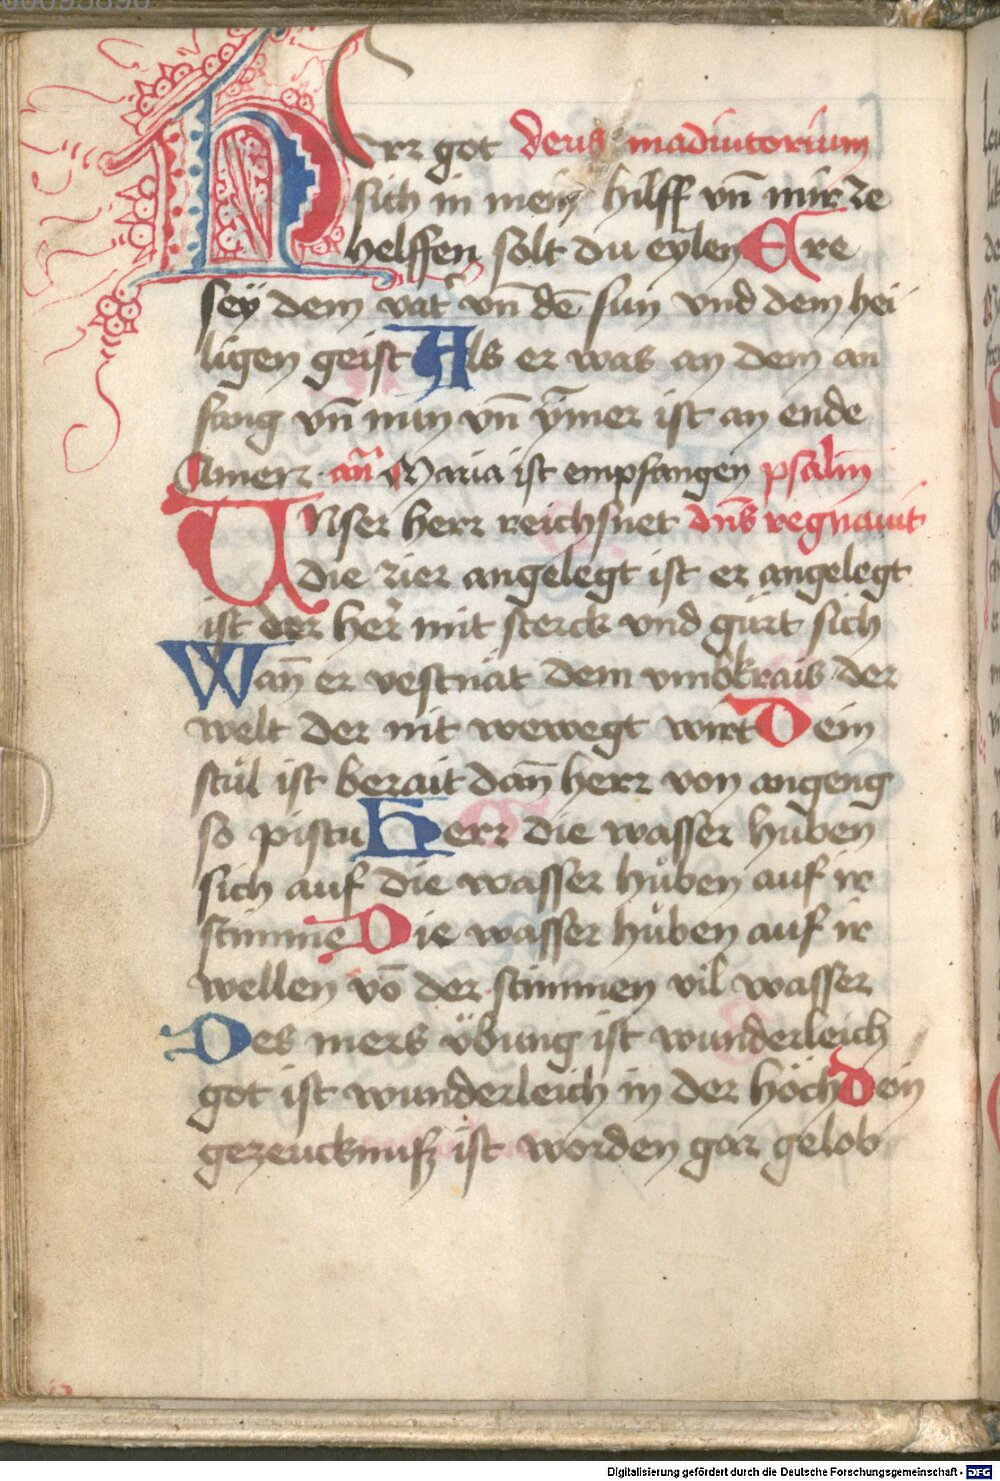 Herr got deus madiutorium
sich in mein hilff vn̄ mir ze
helffen solt du eylen Ere
sey dem vat̛ vn̄ dē sun vnd dem hei
ligen geist Als er was an dem an
fang vn̄ nun vn̄ ÿmer ist an ende
Amen an̄ Maria ist empfangen psalm̄
Unser herr reichsnet dn̄s regnauit
die zier angelegt ist er angelegt
ist der her̛ mit sterck vnd gürt sich
Wan̄ er vestnät dem vmbkrais der
welt der nit wewegt wirt Dein
stůl ist berait dan̄ herr von angeng
so pistu Herr die wasser hůben
sich auf die wasser hůben auf ir
stimme Die wasser hůben auf ir
wellen vō der stimmen vil wasser
Des mers übung ist wunderleich
got ist wunderleich in der höch Dein
gezeucknuß ist worden gar gelob
Digitalisierung gefördert durch die Deutsche Forschungsgemeinschaft - DFG